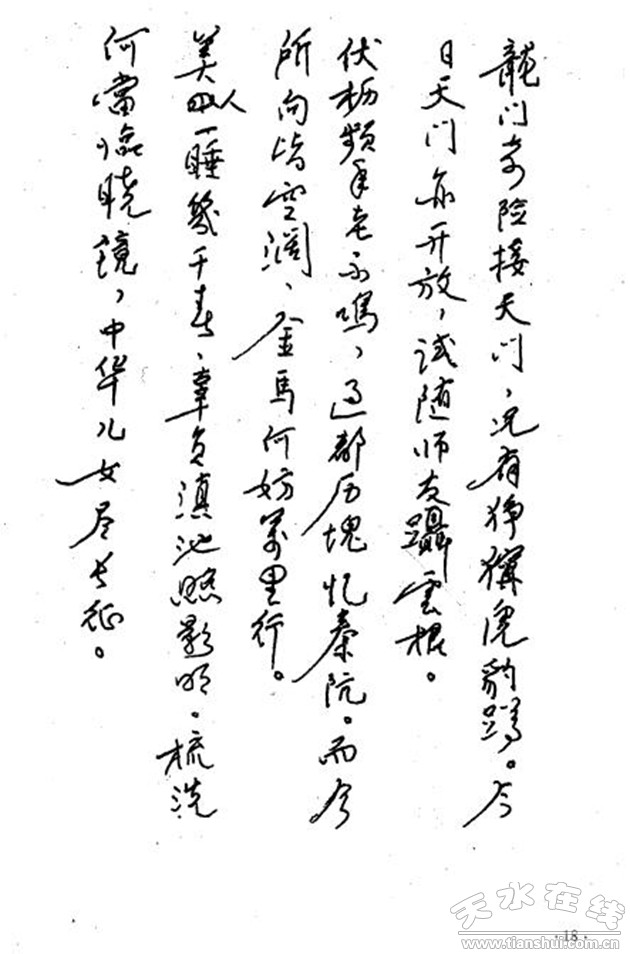 龍门奇险接天门，况有狰狞虎豹蹲。今
日天门亦开放，试随师友蹑雲根。
伏枥频年老不鳴，过都历塊忆秦阬。而今
所向皆空阔，金馬何妨萬里行。
美人一睡幾千春，辜负滇池照影明。梳洗
何當臨曉鏡，中华儿女尽长征。
·18·
天水在线
www.tianshui.com.cn